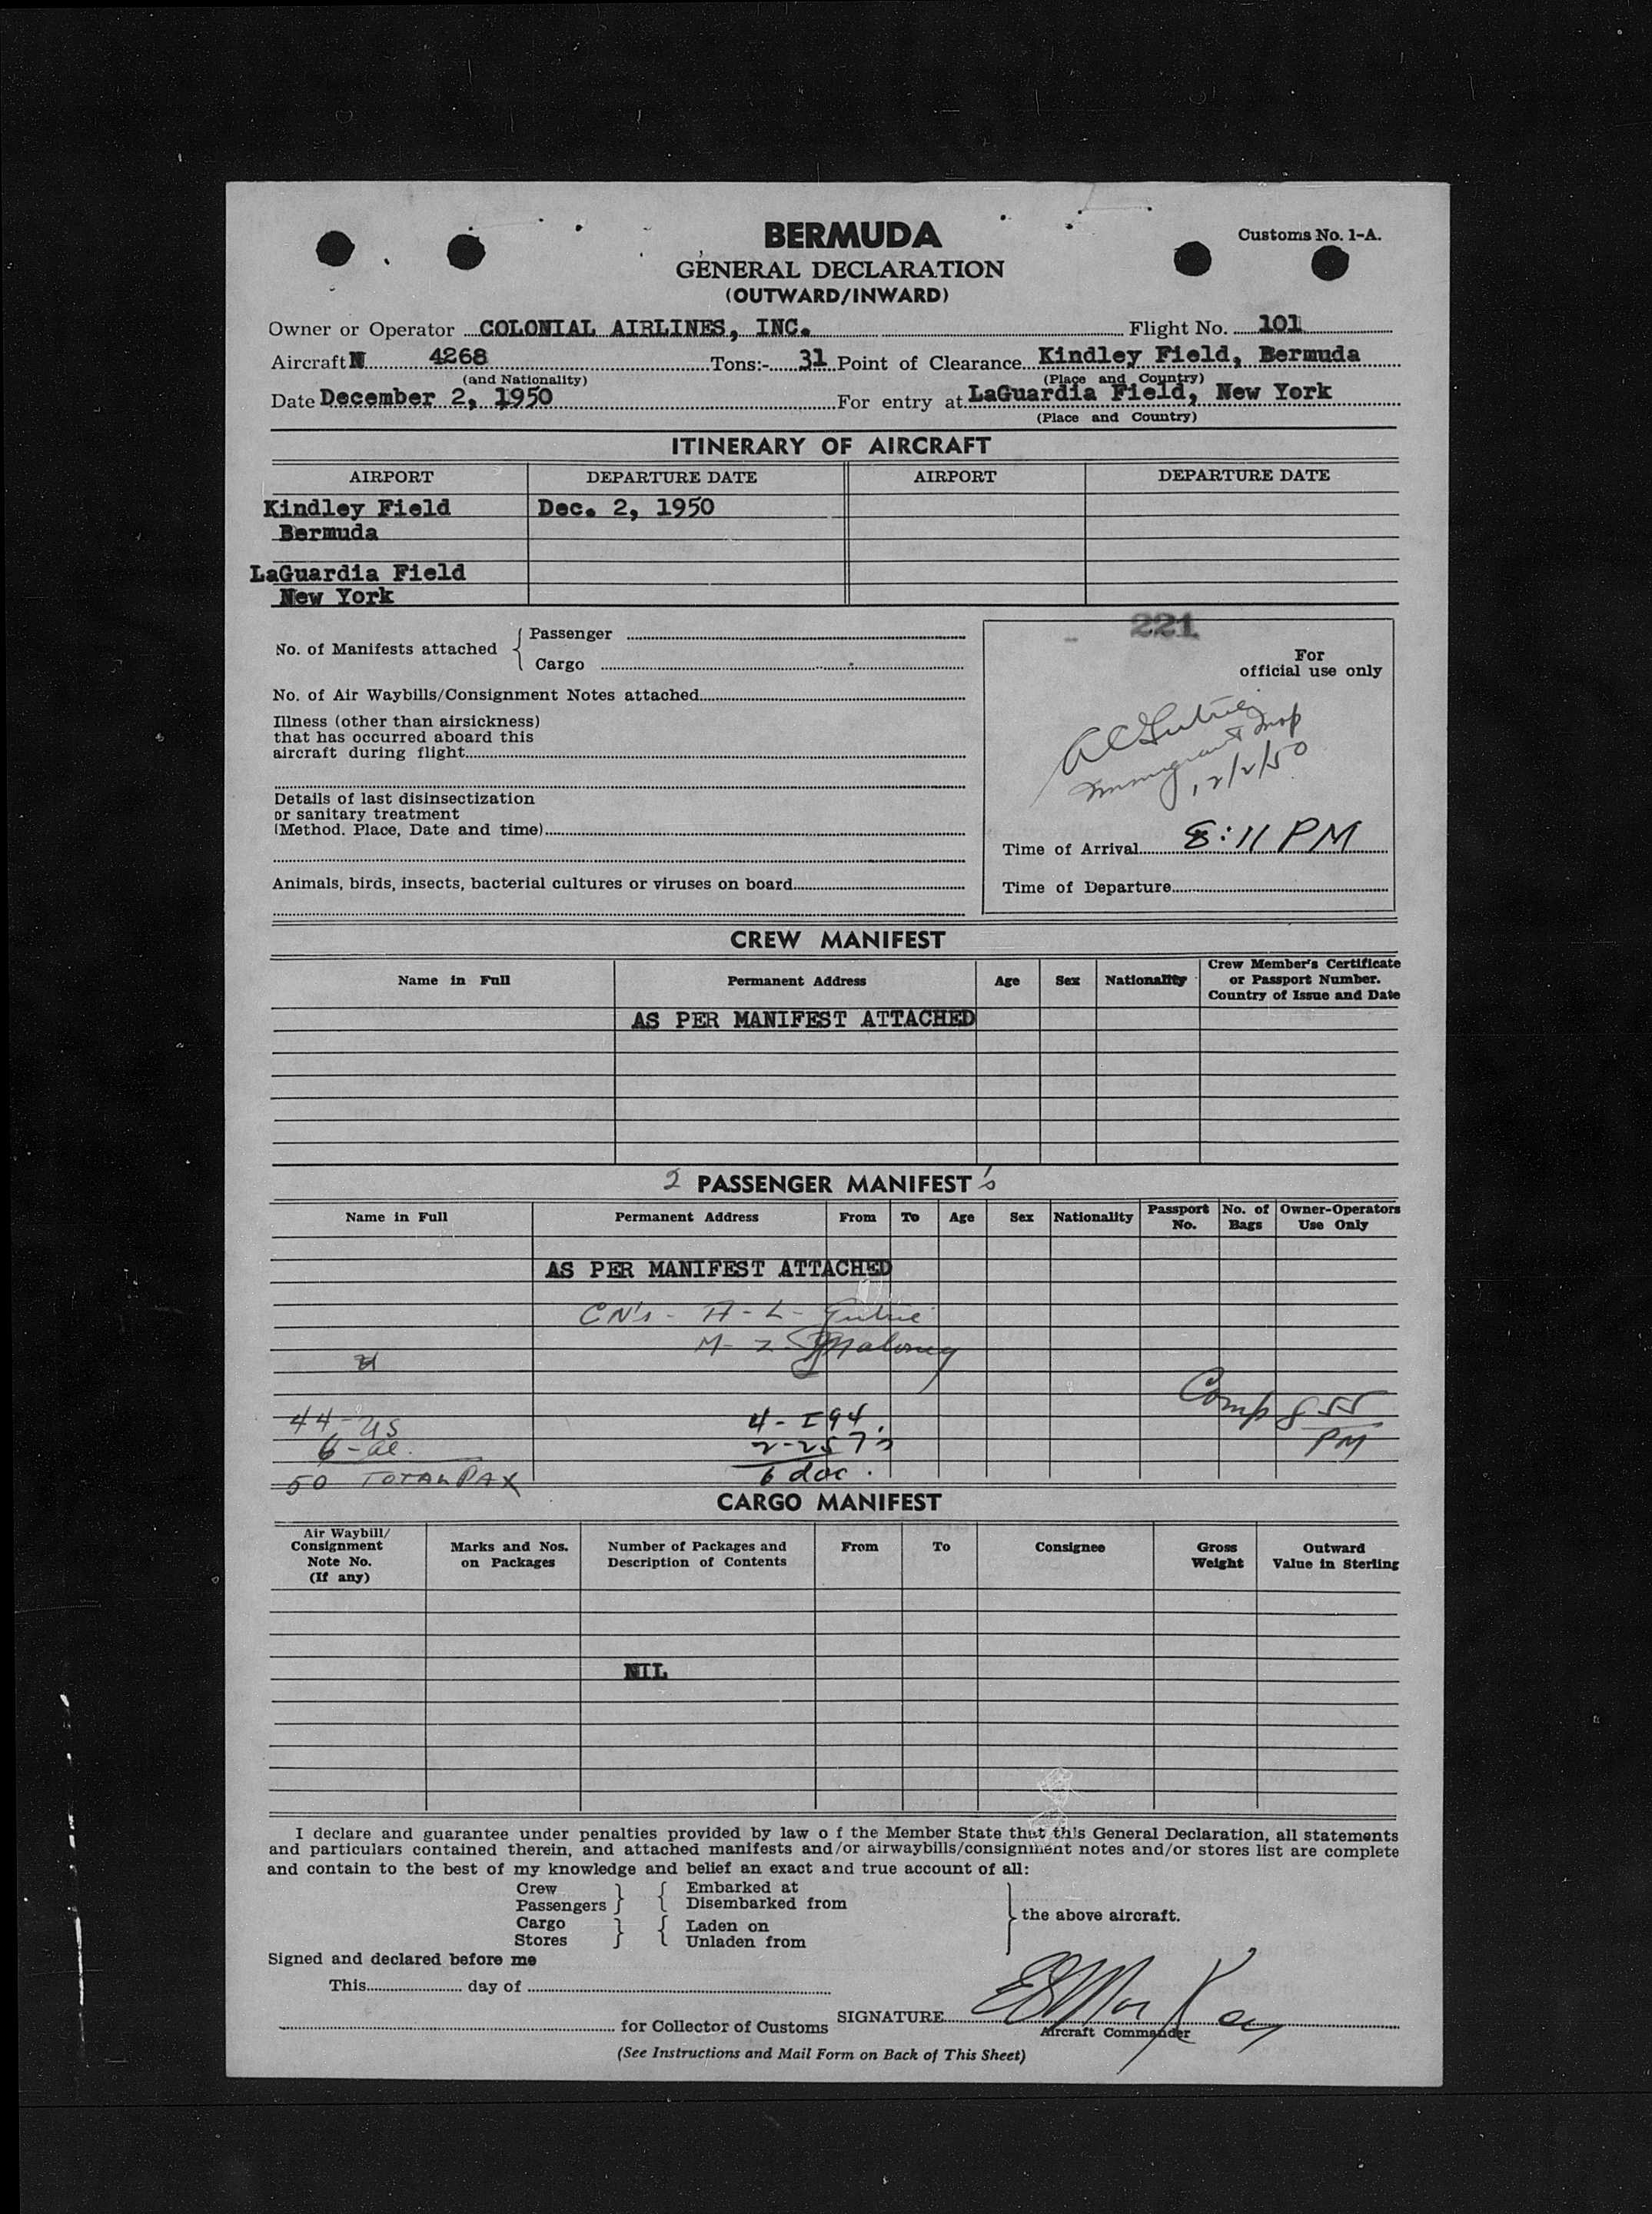 BERMUDA
Customs No. 1-A.
GENERAL DECLARATION
(OUTWARD/INWARD)
Owner or Operator COLONIAL AIRLINES, INC. Flight No. 101
Aircraft N 4268 Tons:- 31 Point of Clearance Kindley Field, Bermuda
(and Nationality) (Place and Country)
Date December 2, 1950 For entry at LaGuardia Field, New York
(Place and Country)
ITINERARY OF AIRCRAFT
AIRPORT DEPARTURE DATE AIRPORT DEPARTURE DATE
Kindley Field Dec. 2, 1950
Bermuda
LaGuardia Field
New York
221
No. of Manifests attached { Passenger
Cargo
For
official use only
No. of Air Waybills/Consignment Notes attached
Illness (other than airsickness)
that has occurred aboard this
aircraft during flight
12/2/50
Details of last disinsectization
or sanitary treatment
(Method. Place, Date and time)
Time of Arrival 8:11 PM
Animals, birds, insects, bacterial cultures or viruses on board
Time of Departure
CREW MANIFEST
Name in Full Permanent Address Age Sex Nationality Crew Member's Certificate
or Passport Number.
Country of Issue and Date
AS PER MANIFEST ATTACHED
2 PASSENGER MANIFEST's
Name in Full Permanent Address From To Age Sex Nationality Passport No. No. of Bags Owner-Operators Use Only
AS PER MANIFEST ATTACHED
CN's - A - L - Gutrie
M - Z Maloney
Comp 8 55
PM
44 - US 4 - I94
6 - al. 2 - 257's
50 TOTAL PAX 6 doc.
CARGO MANIFEST
Air Waybill/
Consignment
Note No.
(If any)
Marks and Nos.
on Packages
Number of Packages and
Description of Contents
From To Consignee
Gross
Weight
Outward
Value in Sterling
NIL
I declare and guarantee under penalties provided by law o f the Member State that this General Declaration, all statements
and particulars contained therein, and attached manifests and/or airwaybills/consignment notes and/or stores list are complete
and contain to the best of my knowledge and belief an exact and true account of all:
Crew } { Embarked at
Passengers Disembarked from
Cargo } { Laden on
Stores Unladen from
} the above aircraft.
Signed and declared before me
This day of
for Collector of Customs SIGNATURE
Aircraft Commander
(See Instructions and Mail Form on Back of This Sheet)